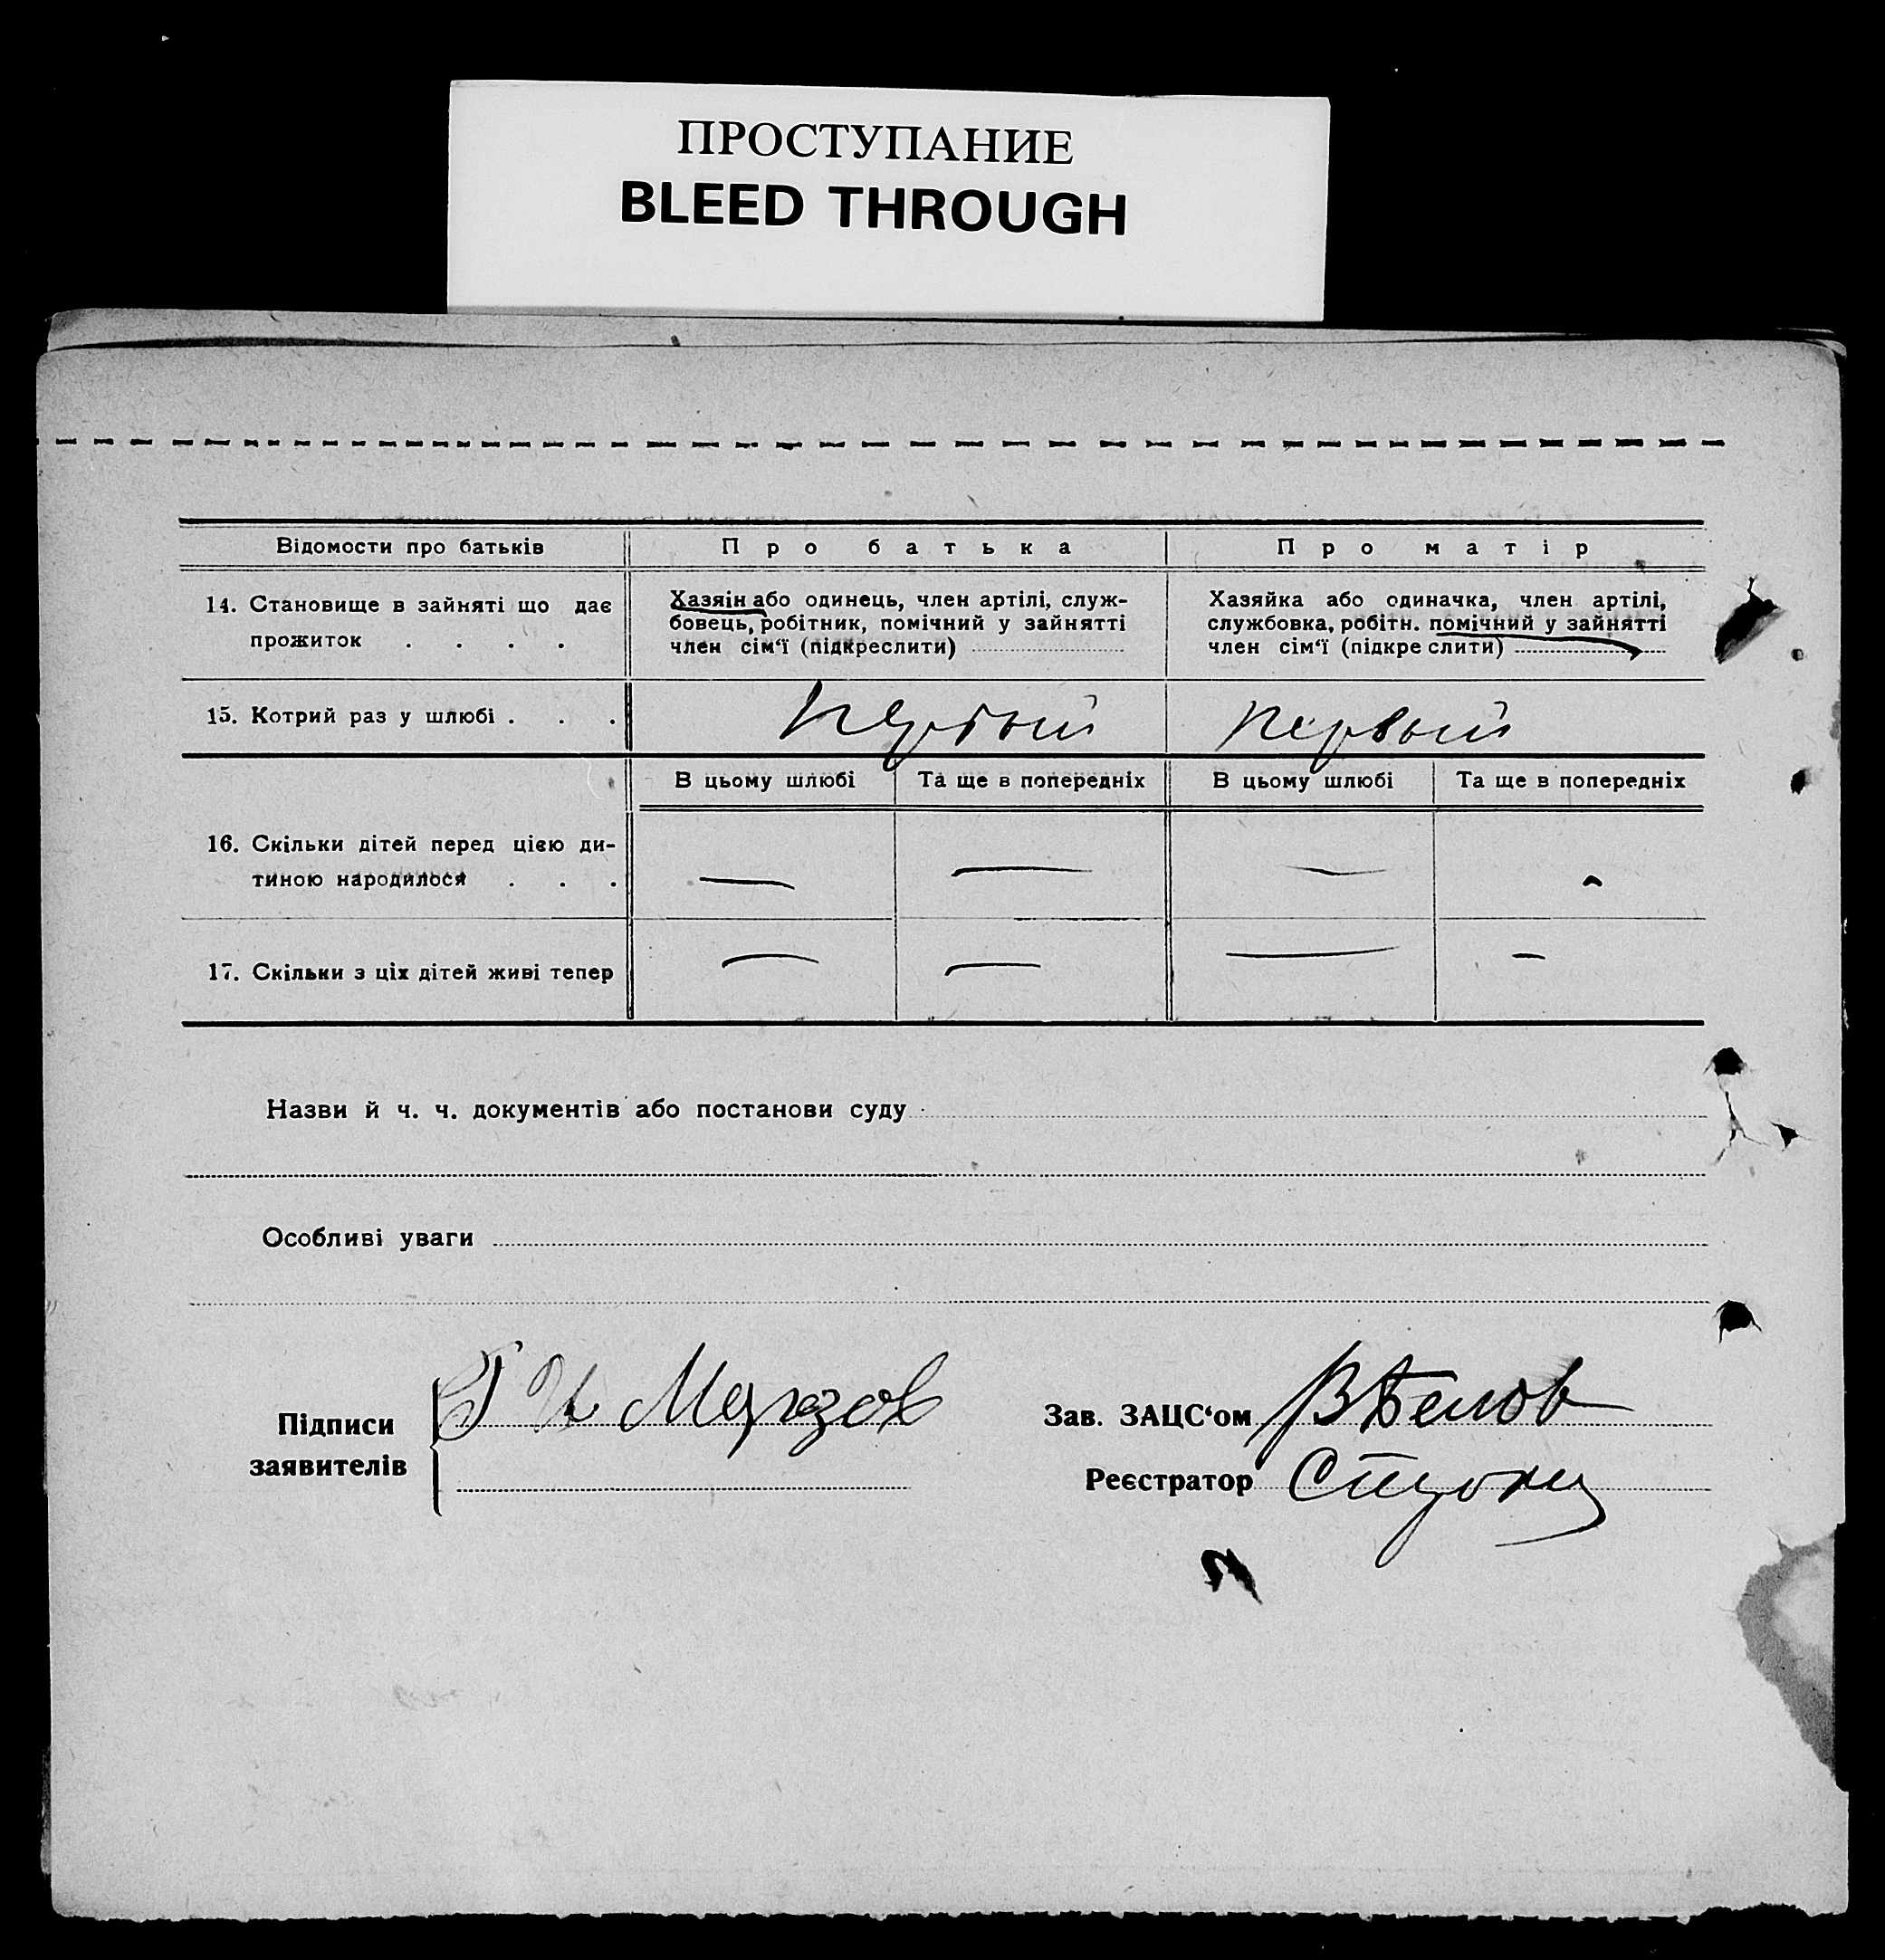 ПРОСТУПАНИЕ
BLEED THROUGH
Відомости про батьків
Про батька
Про матір
14. Становище в зайняті що дає
прожиток . . . .
Хазяін або одинець, член артілі, служ-
бовець, робітник, помічний у зайнятті
член сім‘ї (підкреслити)
Хазяйка або одиначка, член артілі,
службовка, робітн. помічний у зайнятті
член сім‘ї (підкреслити)
15. Котрий раз у шлюбі . . .
первый
первый
В цьому шлюбі
Та ще в попередніх
В цьому шлюбі
Та ще в попередніх
16. Скільки дітей перед цією ди-
тиною народилося . . .
— — — -
17. Скільки з ціх дітей живі тепер
— — — -
Назви й ч. ч. документів або постанови суду
Особливі уваги
Підписи
заявителів
Зав. ЗАЦС‘ом
Реєстратор